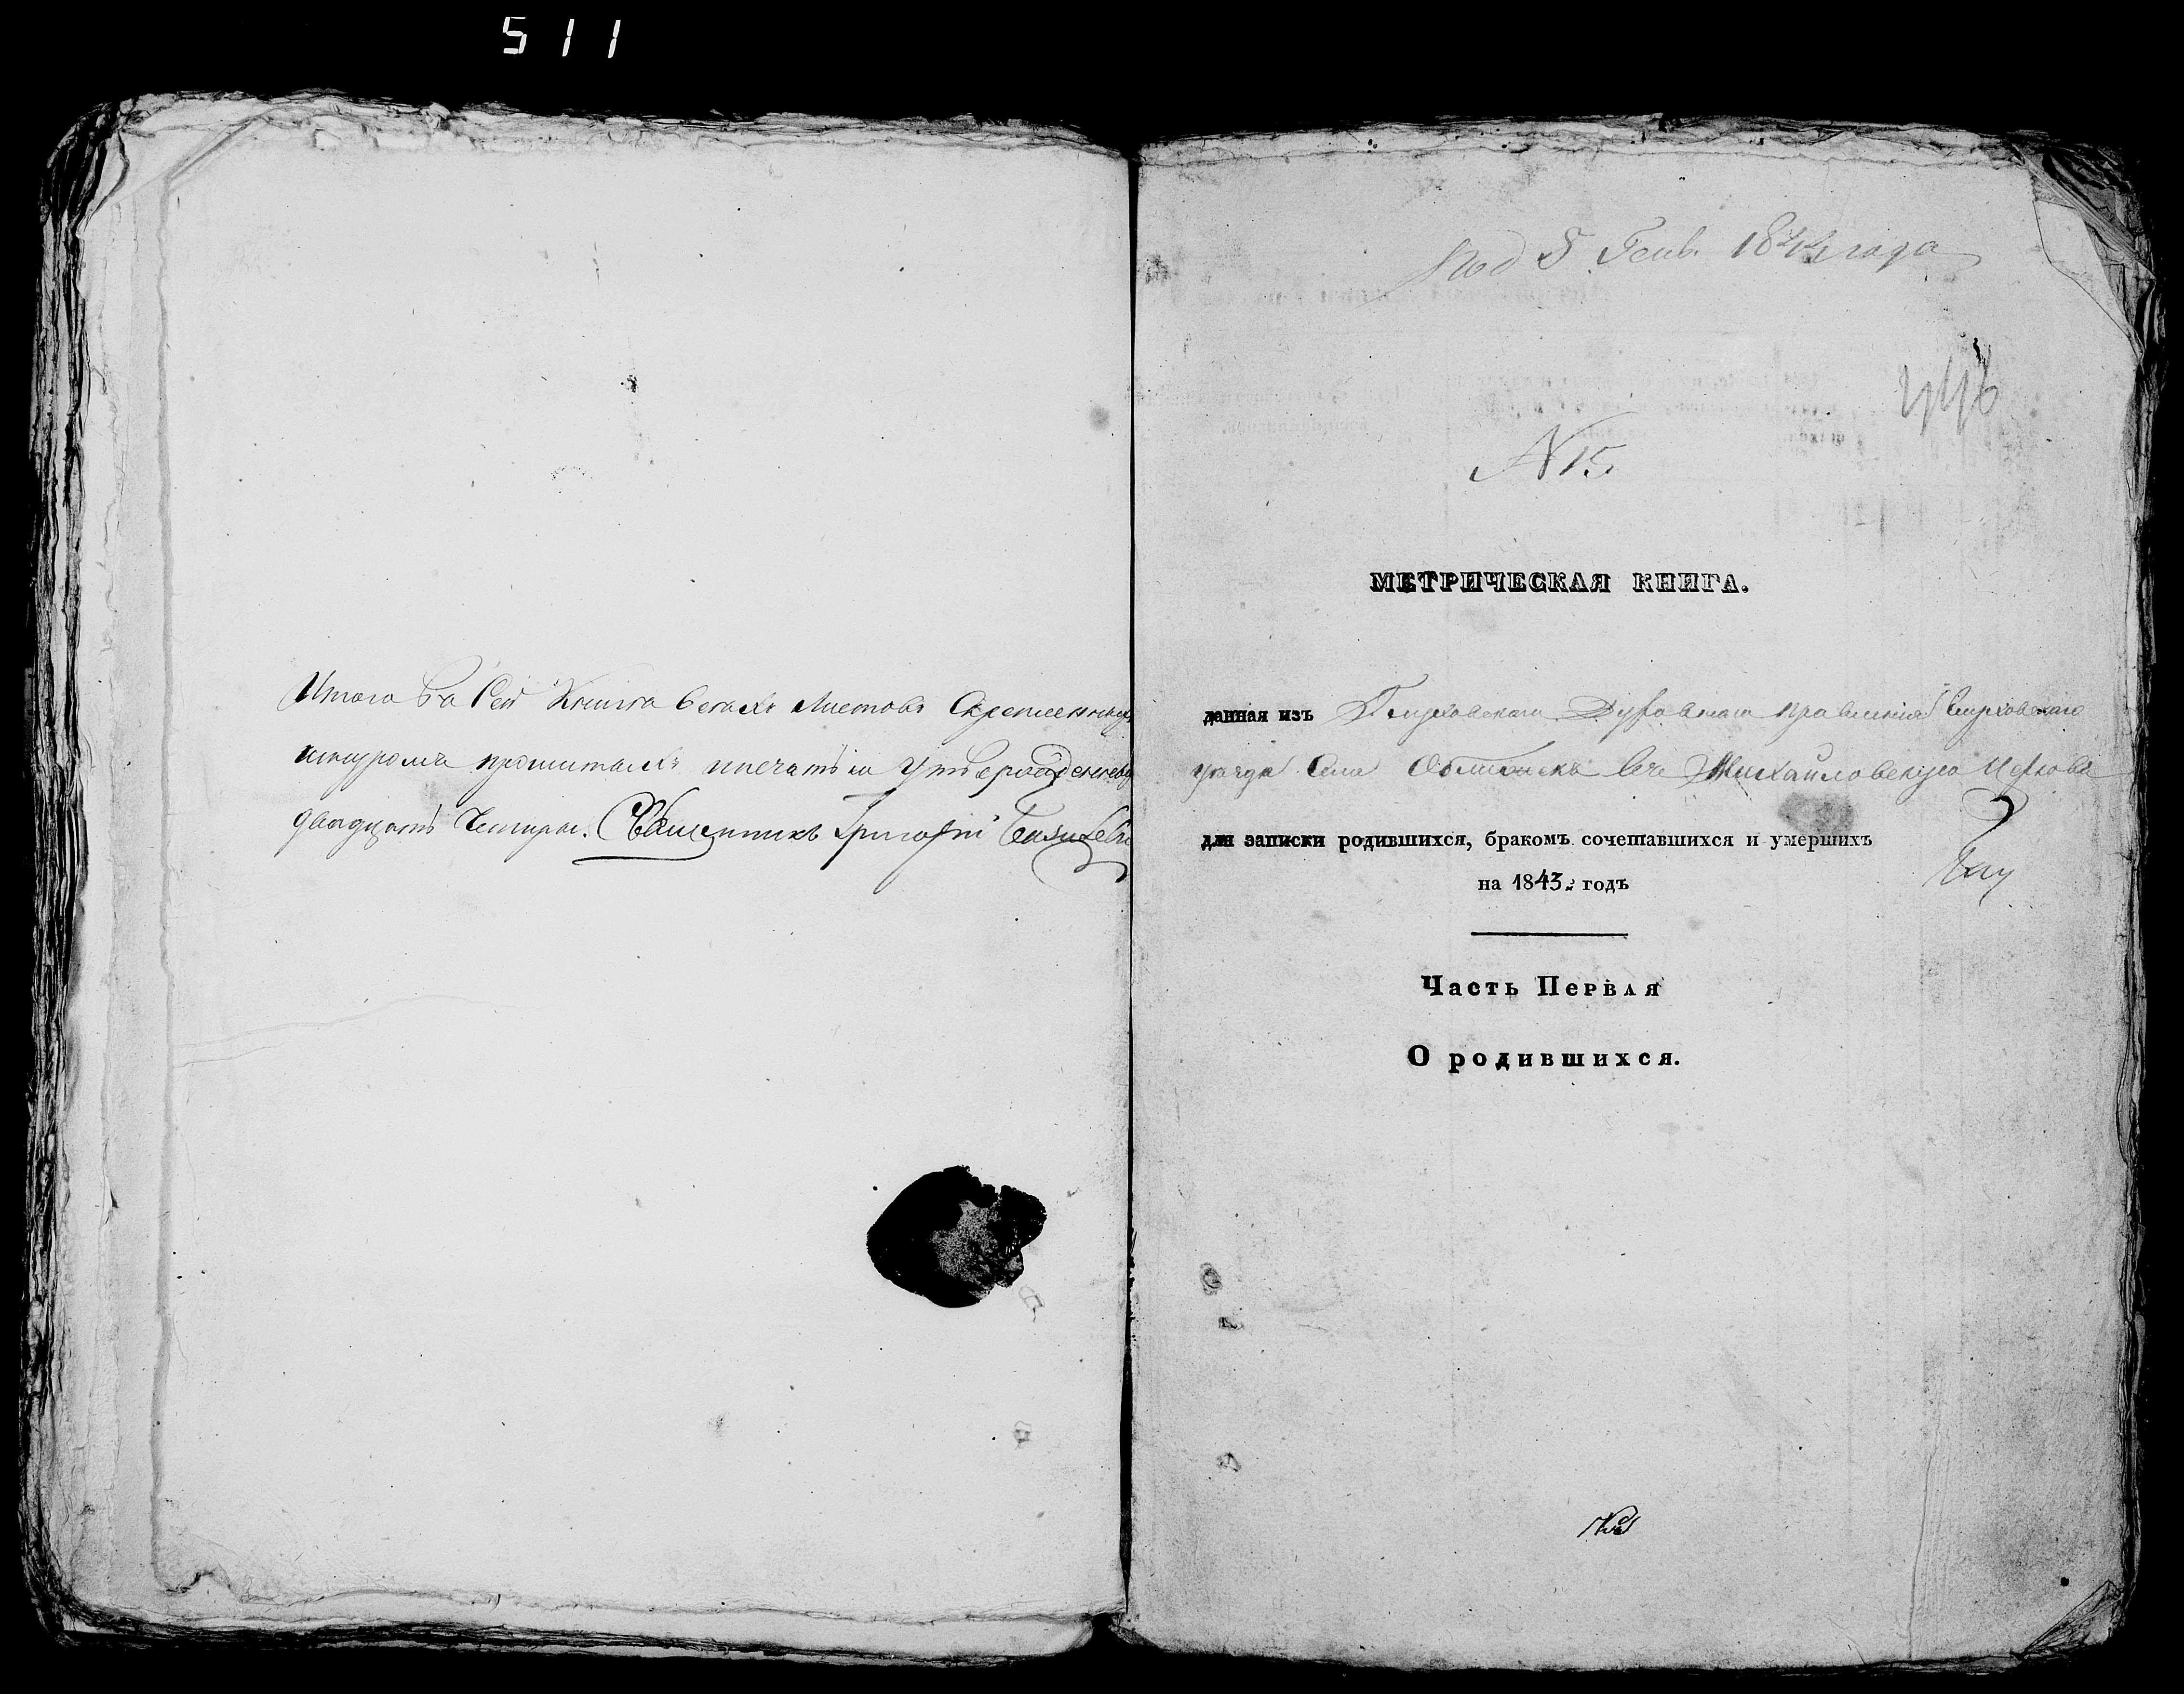 511
Итого въ сей Книги всехъ Листовъ Скрепленныхъ
шнуромъ прошитыхъ и печатью утвержденныхъ
двадцать Четыри. Священникъ Григорій
5 Генв. 1844 года
446
N 15.
МЕТРИЧЕСКАЯ КНИГА.
данная изъ Глуховскаго Духовнаго правленія Глуховскаго
уезда Села Свято Михайловскую Церковь
для записки родившихся, бракомъ сочетавшихся и умершихъ
на 1843. годъ
Часть Первая
О родившихся.